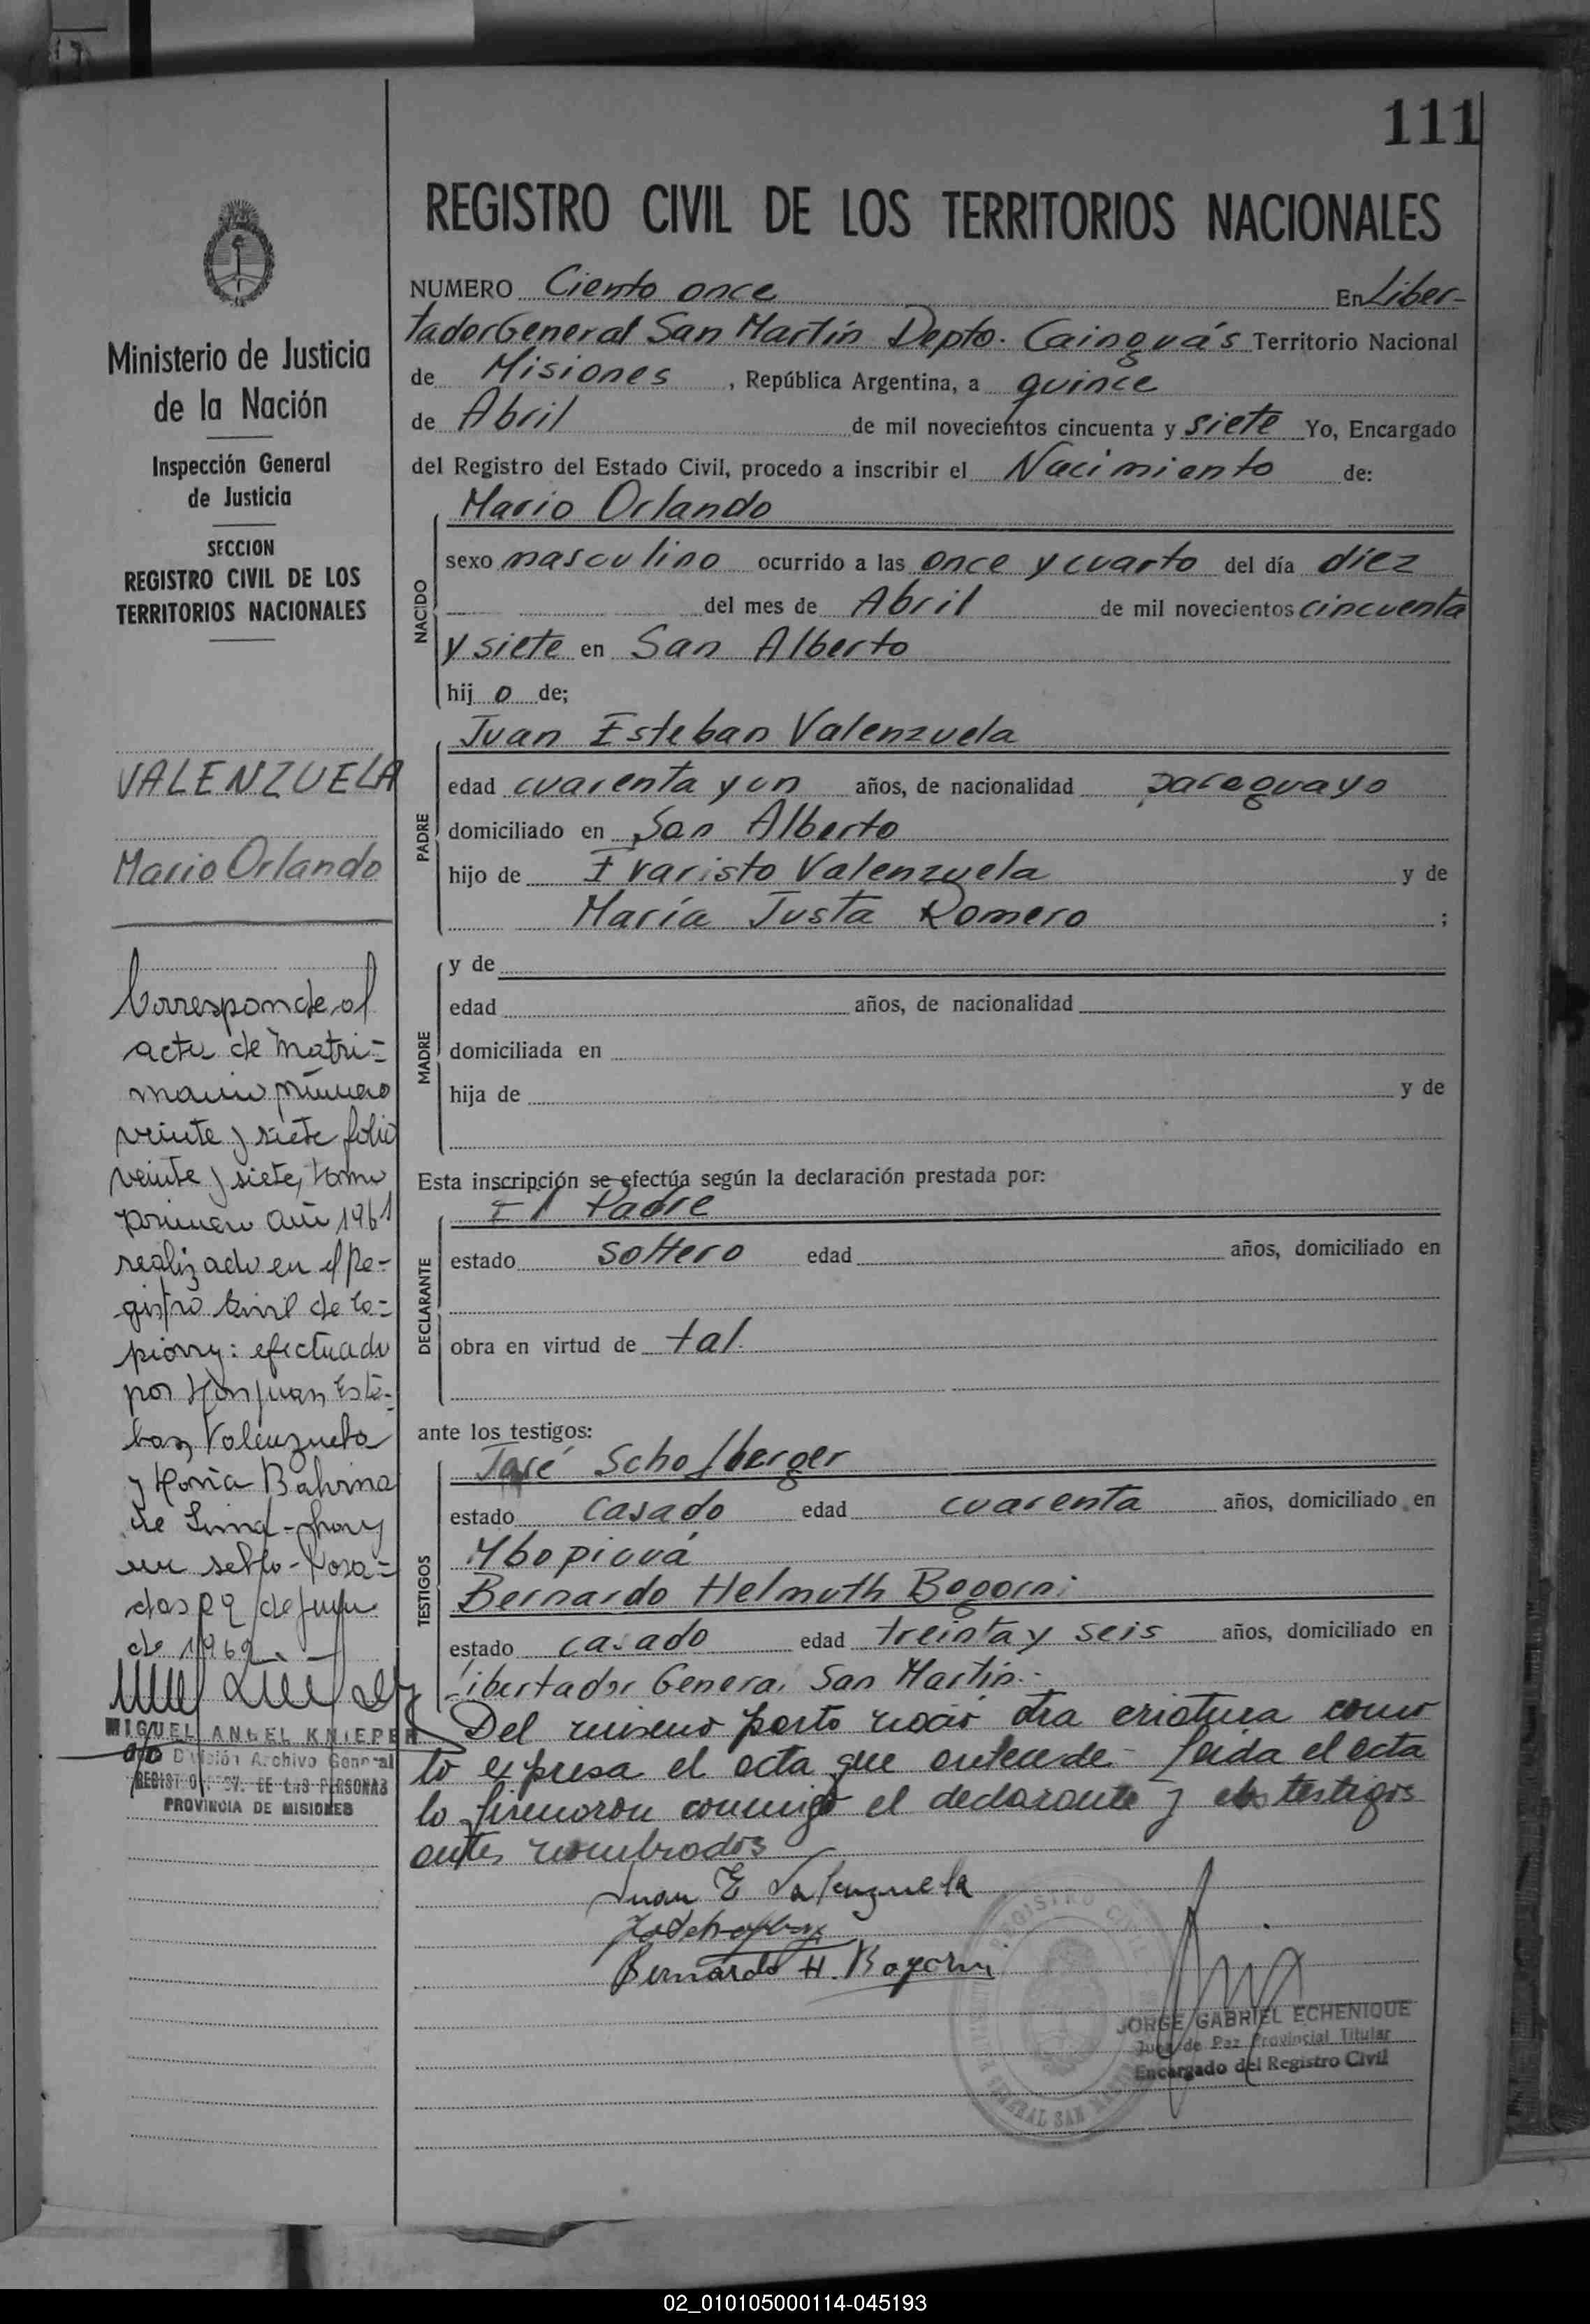 111
REGISTRO CIVIL DE LOS TERRITORIOS NACIONALES
Ministerio de Justicia
de la Nación
Inspección General
de Justicia
SECCION
REGISTRO CIVIL DE LOS
TERRITORIOS NACIONALES
VALENZUELA
Mario Orlando
Corresponde al
acta de Matri=
monio número
veinte y siete folio
veinte y siete, tomo
primero año 1961
realizado en el Re-
gistro Civil de Ca=
piovy: efectuado
por Don Juan Este-
ban Valenzuela
y María Balvina
de Lima
un sello - Posa=
das 29 de
de 1969
MIGUEL ANGEL KNIEPER
División Archivo General
REGISTRO DE LAS PERSONAS
PROVINCIA DE MISIONES
NUMERO Ciento once En Liber-
tador General San Martín Depto. Cainguás Territorio Nacional
de Misiones, República Argentina, a quince
de Abril de mil novecientos cincuenta y siete Yo, Encargado
del Registro del Estado Civil, procedo a inscribir el Nacimiento de:
NACIDO
Mario Orlando
sexo masculino ocurrido a las once y cuarto del día diez
del mes de Abril de mil novecientos cincuenta
y siete en San Alberto
hijo de;
PADRE
Juan Esteban Valenzuela
edad cuarenta y un años, de nacionalidad paraguayo
domiciliado en San Alberto
hijo de Evaristo Valenzuela y de
María Justa Romero ;
MADRE
y de
edad años, de nacionalidad
domiciliada en
hija de y de
Esta inscripción se efectúa según la declaración prestada por:
DECLARANTE
El Padre
estado soltero edad años, domiciliado en
obra en virtud de tal.
ante los testigos:
TESTIGOS
José Schofberger
estado casado edad cuarenta años, domiciliado en
Mbopicuá
Bernardo Helmuth Bogorni
estado casado edad treinta y seis años, domiciliado en
Libertador General San Martín.-
Del mismo parto nació otra criatura como
lo expresa el acta que antecede - Leida el acta
lo firmaron conmigo el declarante y los testigos
antes nombrados
Juan E Valenzuela
Bernardo H. Bogorni
JORGE GABRIEL ECHENIQUE
Juez de Paz Provincial Titular
Encargado del Registro Civil
02_010105000114-045193